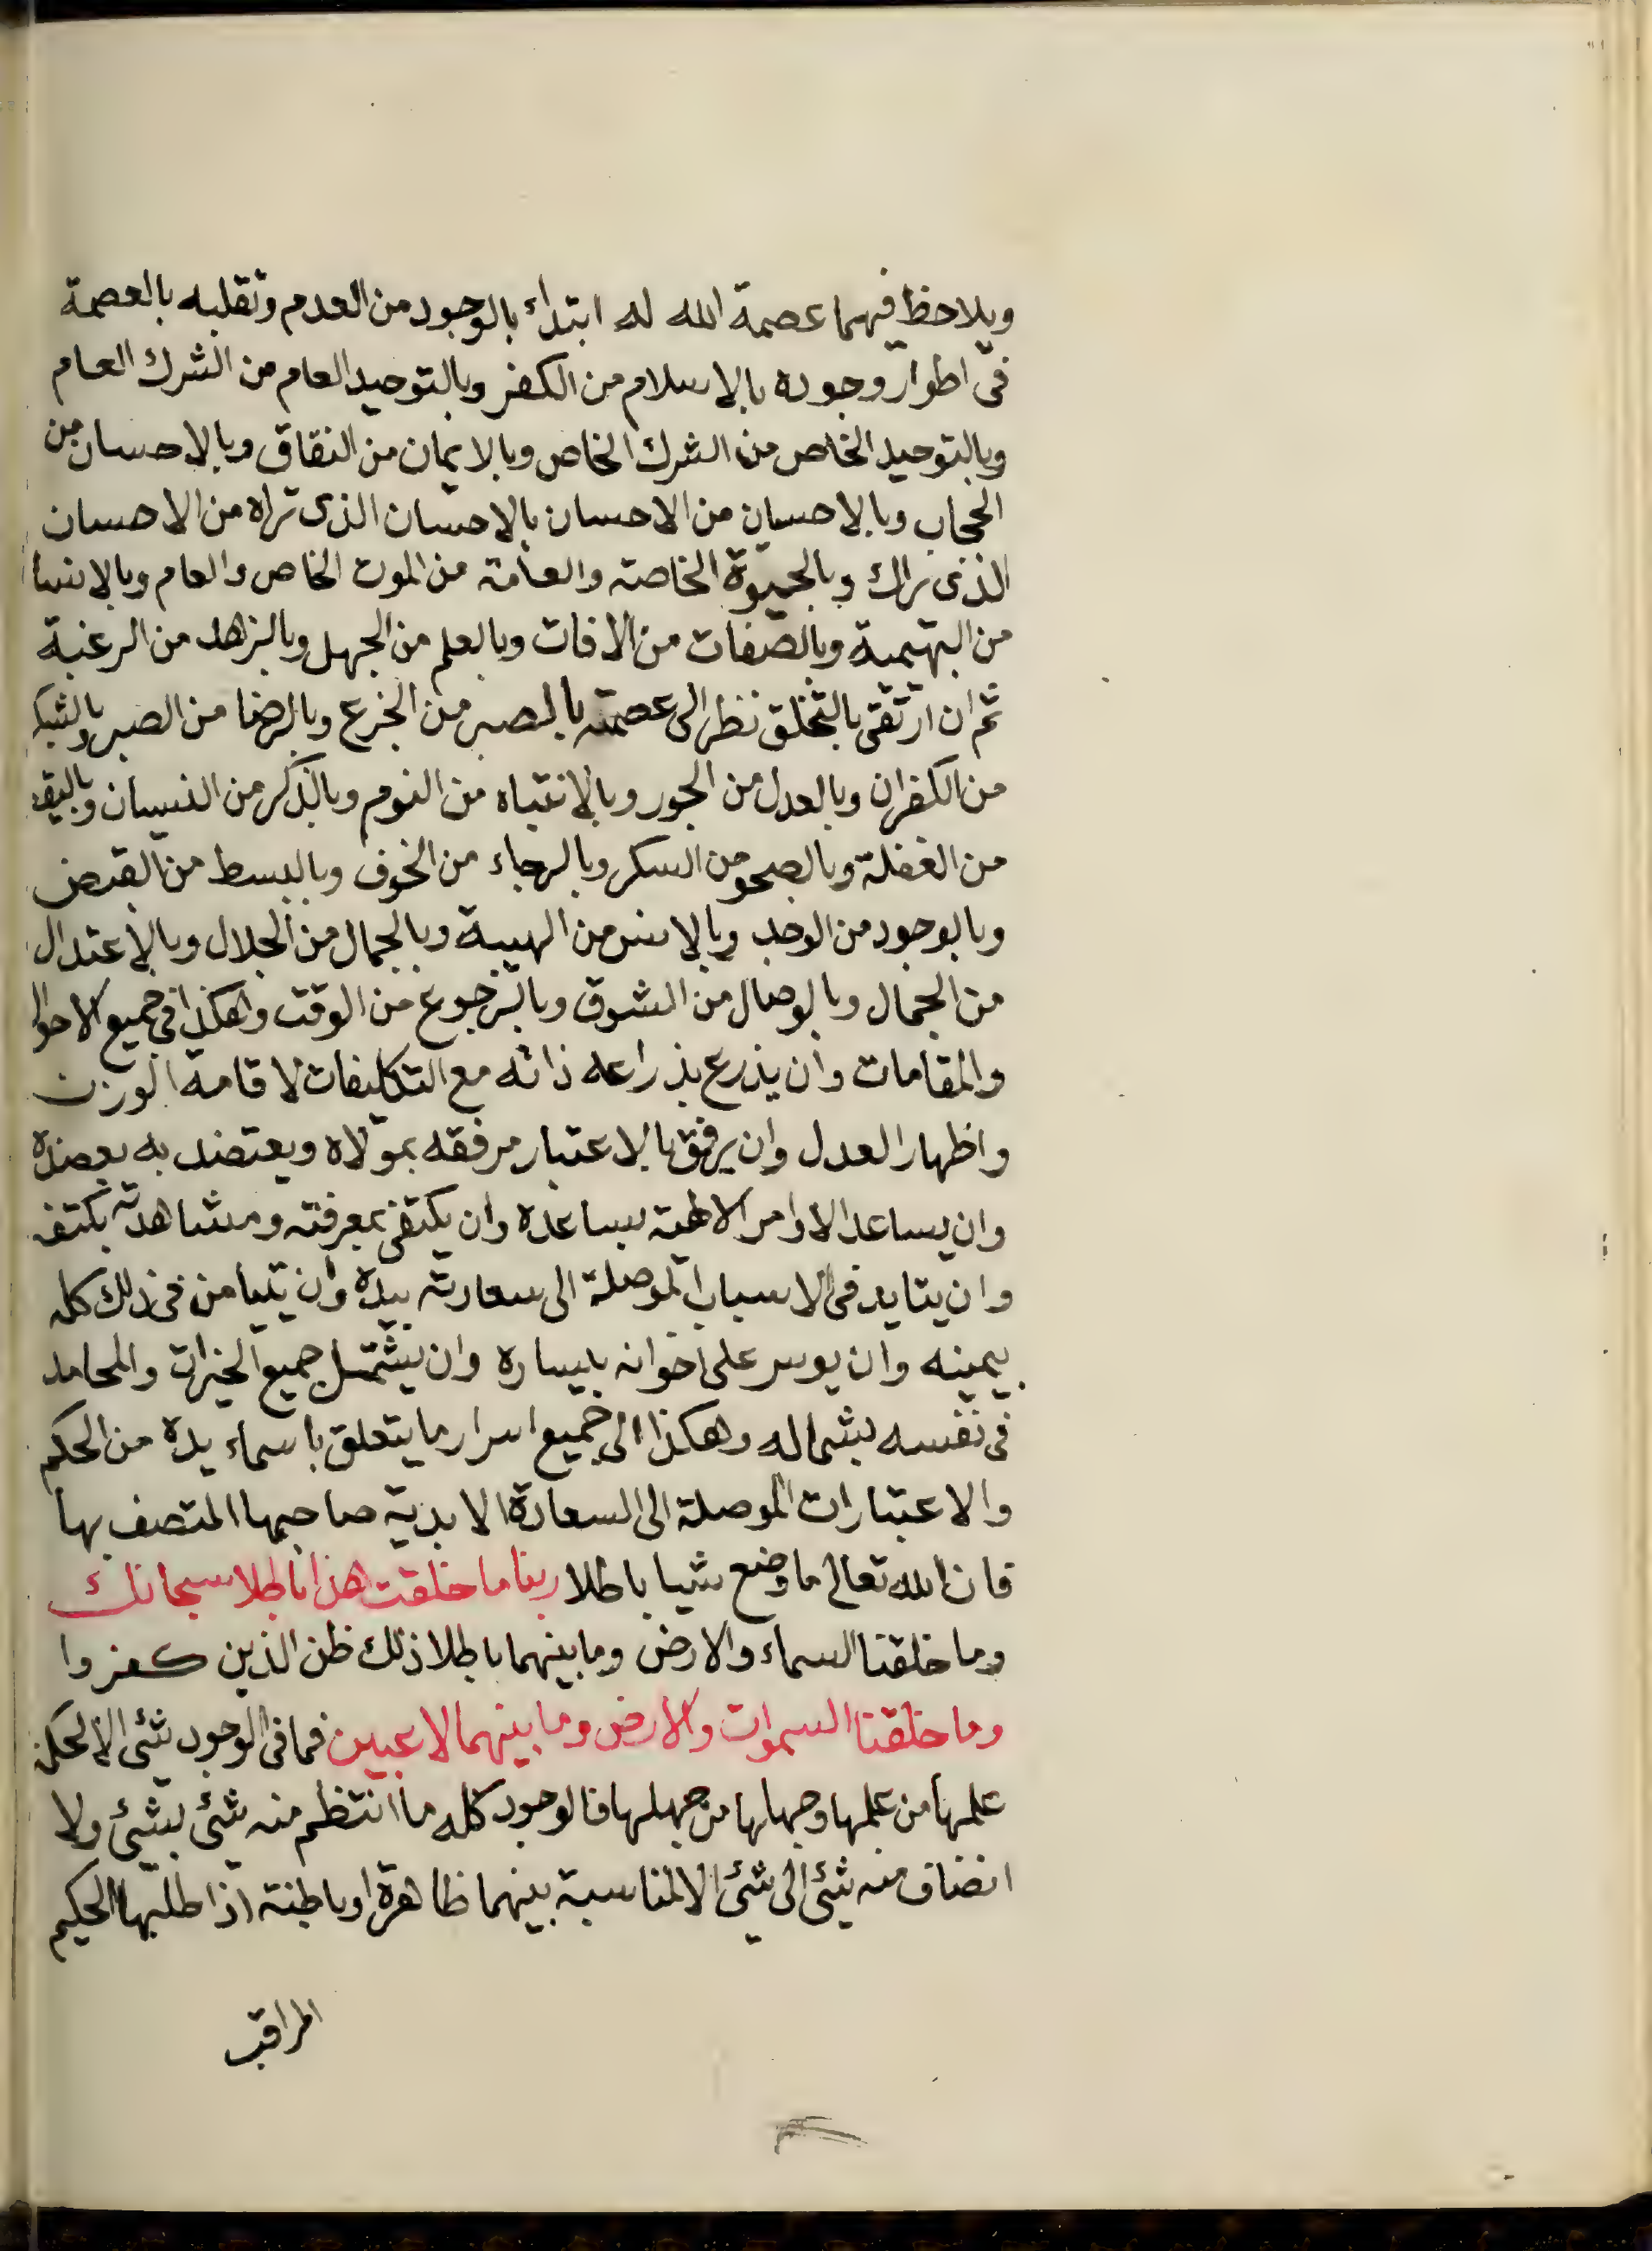 ويلاحظ فيهما عصمة الله له ابتداء بالوجود من العدم وتقلبه بالعصمة
فى اطوار وجوده بالاسلام من الكفر وبالتوحيد العام من الشرك العام
وبالتوحيد الخاص من الشرك الخاص وبالايمان من النفاق وبالاحسان من
الحجاب وبالاحسان من الاحسان بالاحسان الذى تراه من الاحسان
الذى يراك وبالحيوة الخاصة والعامة من الموت الخاص والعام وبالانسا
من البهيمية وبالصفات من الافات وبالعلم من الجهل وبالزهد من الرغبة
ثم ان ارتقى بالتخلق نظر الى عصمته بالصبر من الجزع وبالرضا من الصبر وبالشكر
من الكفران وبالعدل من الجور وبالانتباه من النوم وبالذكر من النسيان وباليقظ
من الغفلة وبالصحو من السكر وبالرجاء من الخوف وبالبسط من القبض
وبالوجود من الوجد وبالانس من الهيبة وبالجمال من الجلال وبالاعتدال
من الجمال وبالوصال من الشوق وبالرجوع من الوقت وهكذا فى جميع الاحوال
والمقامات وان يذرع بذراعه ذاته مع التكليفات لاقامة الوزن
واظهار العدل وان يرفق بالاعتبار مرفقه بمولاه ويعتضد به بعضده
وان يساعد الاوامر الالهية بساعده وان يكتفى بمعرفته ومشاهدته بكتفه
وان يتايد فى الاسباب الموصلة الى سعادته بيده وان يتيامن فى ذلك كله
بيمينه وان يوسر على اخوانه بيساره وان يشتمل جميع الخيرات والمحامد
فى نفسه بشماله وهكذا الى جميع اسرار ما يتعلق باسماء يده من الحكم
والاعتبارات الموصلة الى السعادة الابدية صاحبها المتصف بها
فان الله تعالى ما وضع شيا باطلا ربنا ما خلقت هذا باطلا سبحانك
وما خلقنا السماء والارض وما بينهما باطلا ذلك ظن الذين كفروا
وما خلقنا السموات والارض وما بينهما لاعبين فما فى الوجود شئ الا لحكمة
علمها من علمها وجهلها من جهلها فالوجود كله ما انتظم منه شئ بشئ ولا
انضاف منه شئ الى شئ الا لمناسبة بينهما ظاهرة او باطنة اذا طلبها الحكيم
المراقب